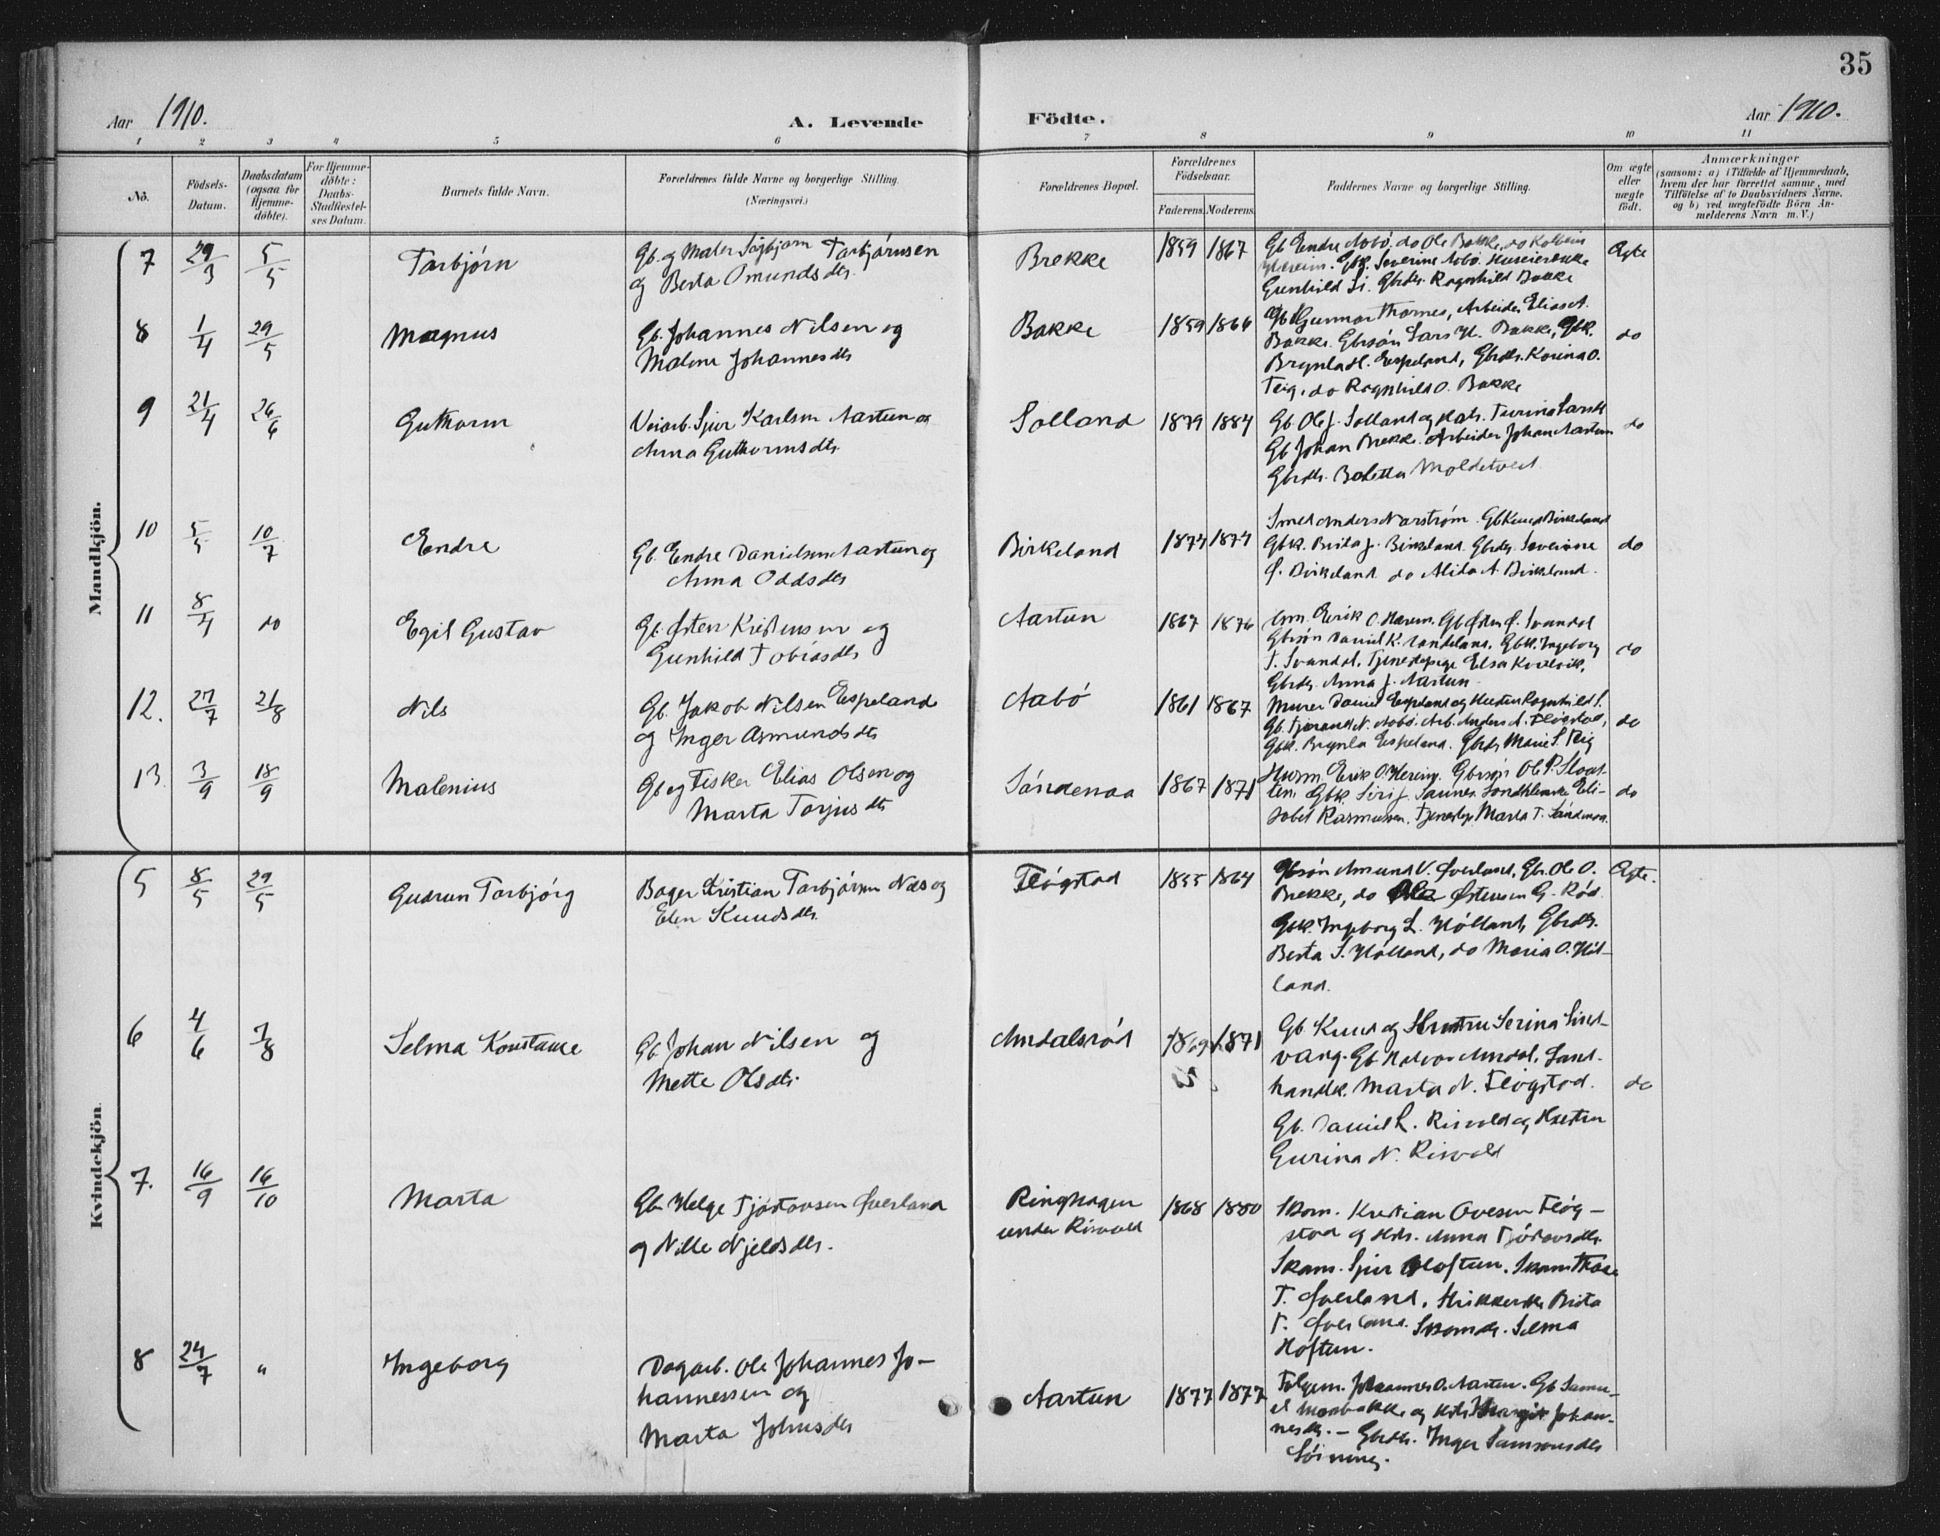 35
Aar 1910. A. Levende Födte. Aar 1910.
1 2 3 4 5 6 7 8 9 10 11
No.
Födsels-
Datum.
Daabsdatum
(ogsaa for
Hjemme-
döbte).
For Hjemme-
döbte:
Daabs-
Stadfæstel-
ses Datum.
Barnets fulde Navn.
Forældrenes fulde Navne og borgerlige Stilling.
(Næringsvei.)
Forældrenes Bopæl.
Forældrenes
Födselsaar.
Faderens. Moderens.
Faddernes Navne og borgerlige Stilling.
Om ægte
eller
uægte
födt.
Anmærkninger
(saasom: a) i Tilfælde af Hjemmedaab,
hvem der har forrettet samme, med
Tilföielse af to Daabsvidners Navne.
og b) ved uægtefödte Börn An-
melderens Navn m. V.)
Mandkjön.
7 29/3 5/5 Torbjörn
Gb. og Maler Torbjörnsen
og Berta Omundsdtr.
Brekke 1859 1867
Gb Endre Aabö, do Ole Bakke, do Kolbein
Gbk. Severine Aabö.
Gunhild Li. Gbrdtr. Ragnhild Bakke
Ægte
8 1/4 29/5 Magnus
Gb. Johannes Nilsen og
Malene Johannesdtr
Bakke 1859 1866
Gb Gunnar Thornes, Arbeider Elias A.
Bakke. Gbrsön Lars H. Bakke, Gbk.
Brynla H. Espeland, Gbrdtr. Korina O.
Teig, do Ragnhild O. Bakke
do
9 21/4 26/6 Guthorm
Veiarb. Sjur Karlsen Aartun og
Anna Guthormsdtr
Solland 1879 1884
Gb. Ole J. Solland og Turina Larsdtr
Gb Johan Brekke. Arbeider Johan Aartun
Gbrdtr. Boletta Moldetveit
do
10 5/5 10/7 Endre
Gb. Endre Danielsen Aartun og
Anna Oddsdtr
Birkeland 1874 1874
Smed Anders Narström. Gb Knud Birkeland
Gbk. Brita J. Birkeland. Gbrdtr. Severine
Ø. Birkeland do Alida A. Birkeland.
do
11 8/4 do Egil Gustav
Gb. Østen Kristensen og
Gunhild Tobiasdtr
Aartun 1867 1876
Erik O. Gb Østen Ø. Svandal
Gbrsön Daniel K. Gbk. Ingeborg
T. Svandal, Tjenestepige Elsa Kvelvik,
Gbrdtr. Anna J. Aartun
do
12. 27/7 21/8 Nils
Gb. Jakob Nilsen Espeland
og Inger Asmundsdtr
Aabö 1861 1867
Murer Daniel Espeland og Hustru Ragnhild S.
Gb. Tjerand N. Aabö. Arb. Anders A. Flögstad,
Gbk. Brynla Espeland. Gbrdtr Marie S. Teig
do
13. 3/9 18/9 Malenius
Gb og Fisker Elias Olsen og
Marta Torjusdtr
Söndenaa 1867 1871
Husm. Erik O. Gbrsön Ole P. Sloat-
ten. Gbk. Siri J. Saunes. Eli-
sabet Rasmussen. Tjenestep. Marta T. Söndenaa
do
Kvindekjön.
5 8/5 29/5 Gudrun Torbjörg
Bager Kristian Torbjörnsen Næs og
Elen Knudsdtr.
Flögstad 1855 1864
Gbrsön Amund V. Øverland, Gbr. Ole O.
Brekke, do Østensen G. Röd.
Gbk. Ingeborg L. Hölland, Gbrdtr.
Berta S. Hölland, do Maria O. Höl-
land.
Ægte.
6 4/6 7/8 Selma Konstanse
Gb. Johan Nilsen og
Mette Olsdtr.
Amdalsröd 1871
Gb. Knud og Hustru Serina Sand-
vang. Gb Halvor Amdal, Land-
handlk. Marta N. Flögstad.
Gb. Daniel L. Risvold og Hustru
Gurina N. Risvold
do
7. 16/9 16/10 Marta
Gb Helge Tjöstovsen Øverland
og Nille Njeldsdtr.
Ringhagen
under Risvold
1868 1880
Skom. Kristian Ovesen Flög-
stad og Hstr. Anna Tjöstovsdtr.
Skom. Sjur Hoftun.
T. Øverland, Strikkerske Brita
T. Øverland. Skomdtr. Selma
Hoftun.
8 24/7 " Ingeborg
Dagarb. Ole Johannes Jo-
hannessen og
Marta Johnsdtr
Aartun 1877 1877
Fölgem. Johannes O. Aartun. Gb Samu-
el og Hstr. Margit Johan-
nesdtr. - Gbrdtr. Inger Samsonsdtr